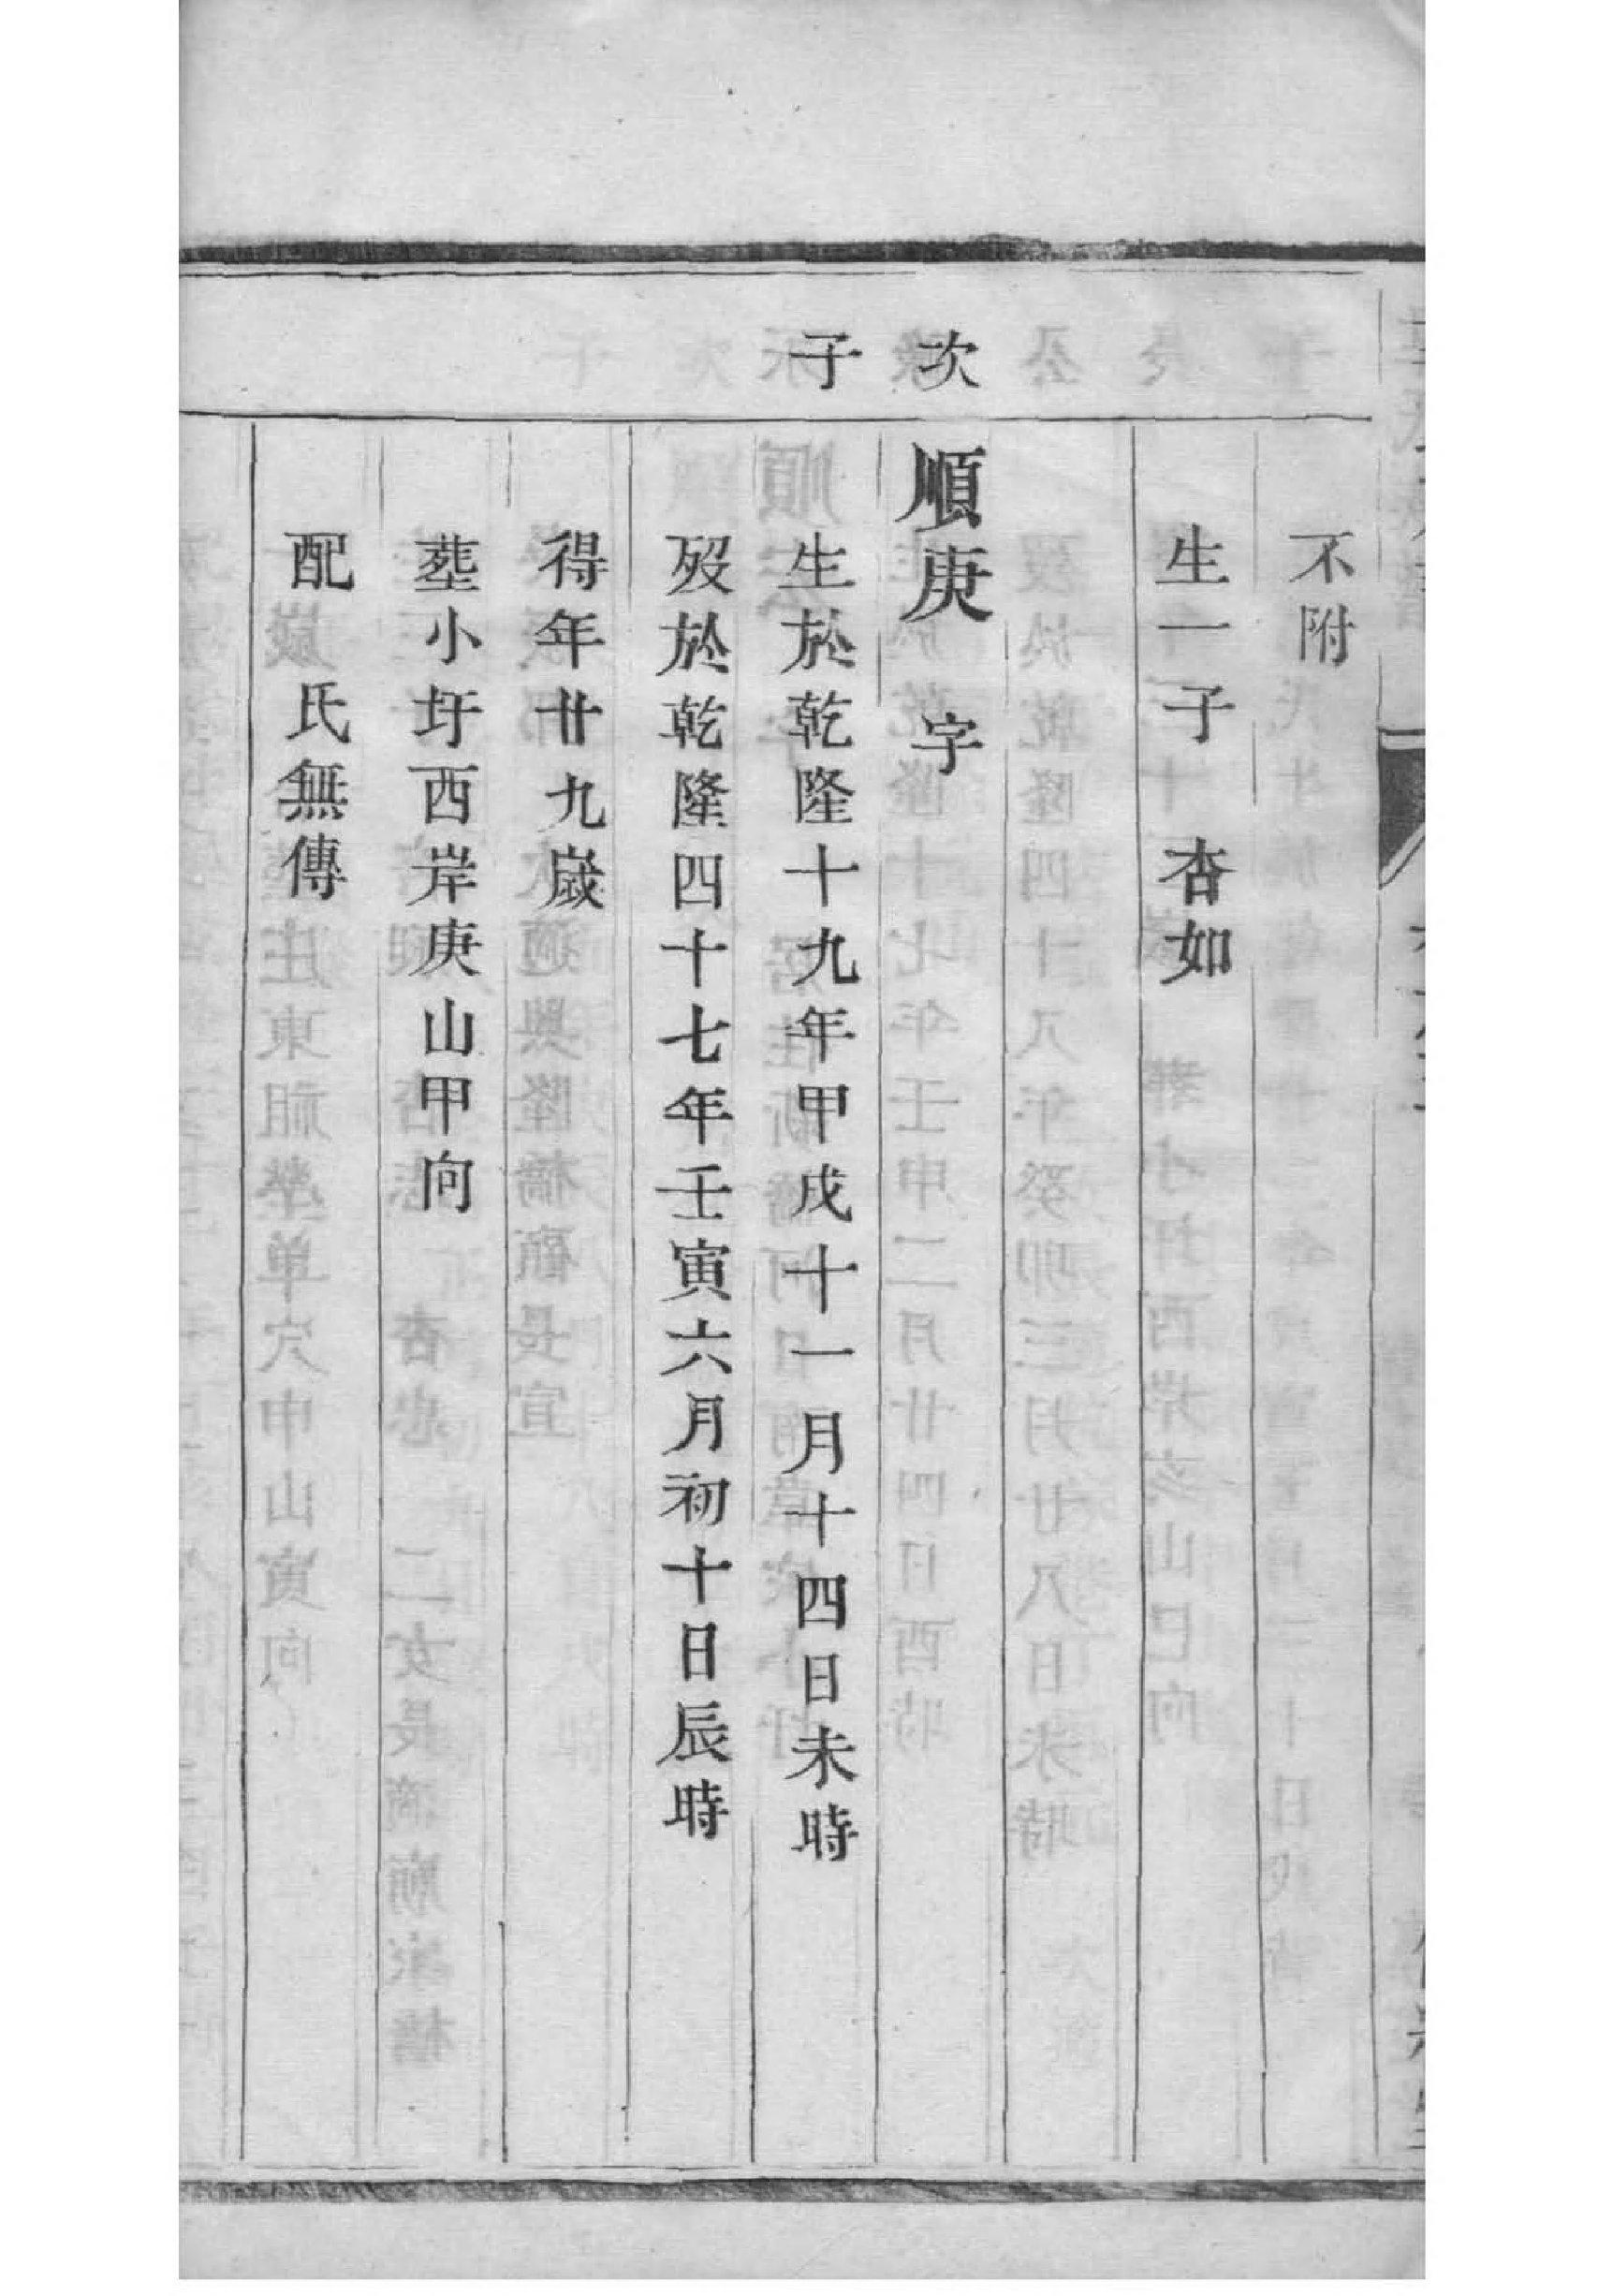 不附
生一子 杏如
次
順庚 字
子
生於乾隆十九年甲戌十一月十四日未時
歿於乾隆四十七年壬寅六月初十日辰時
得年廿九歲
塟小圩西岸庚山甲向
配 氏無傳